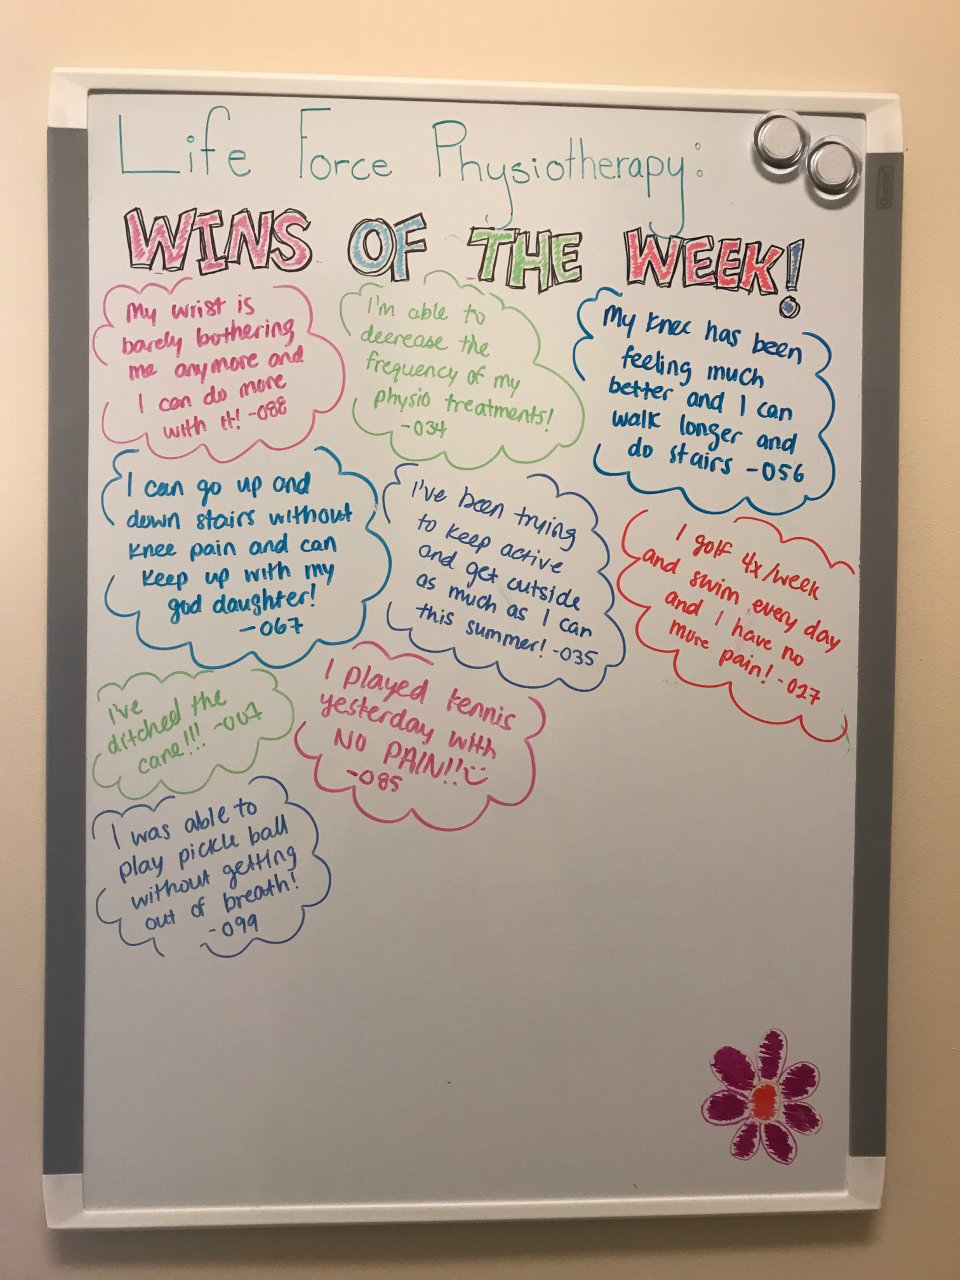 Life Force Physiotherapy:
WINS OF THE WEEK!
My wrist is
barely bothering
me anymore and
I can do more
with it! -088
I'm able to
decrease the
frequency of my
physio treatments!
-034
My knee has been
feeling much
better and I can
walk longer and
do stairs -056
I can go up and
down stairs without
knee pain and can
keep up with my
god daughter!
-067
I've been trying
to keep active
and get outside
as much as I can
this summer! -035
I golf 4x/week
and swim every day
and I have no
more pain! -027
I've
ditched the
cane!!! -007
I played tennis
yesterday with
NO PAIN!!
-085
I was able to
play pickle ball
without getting
out of breath!
-099
Quartet